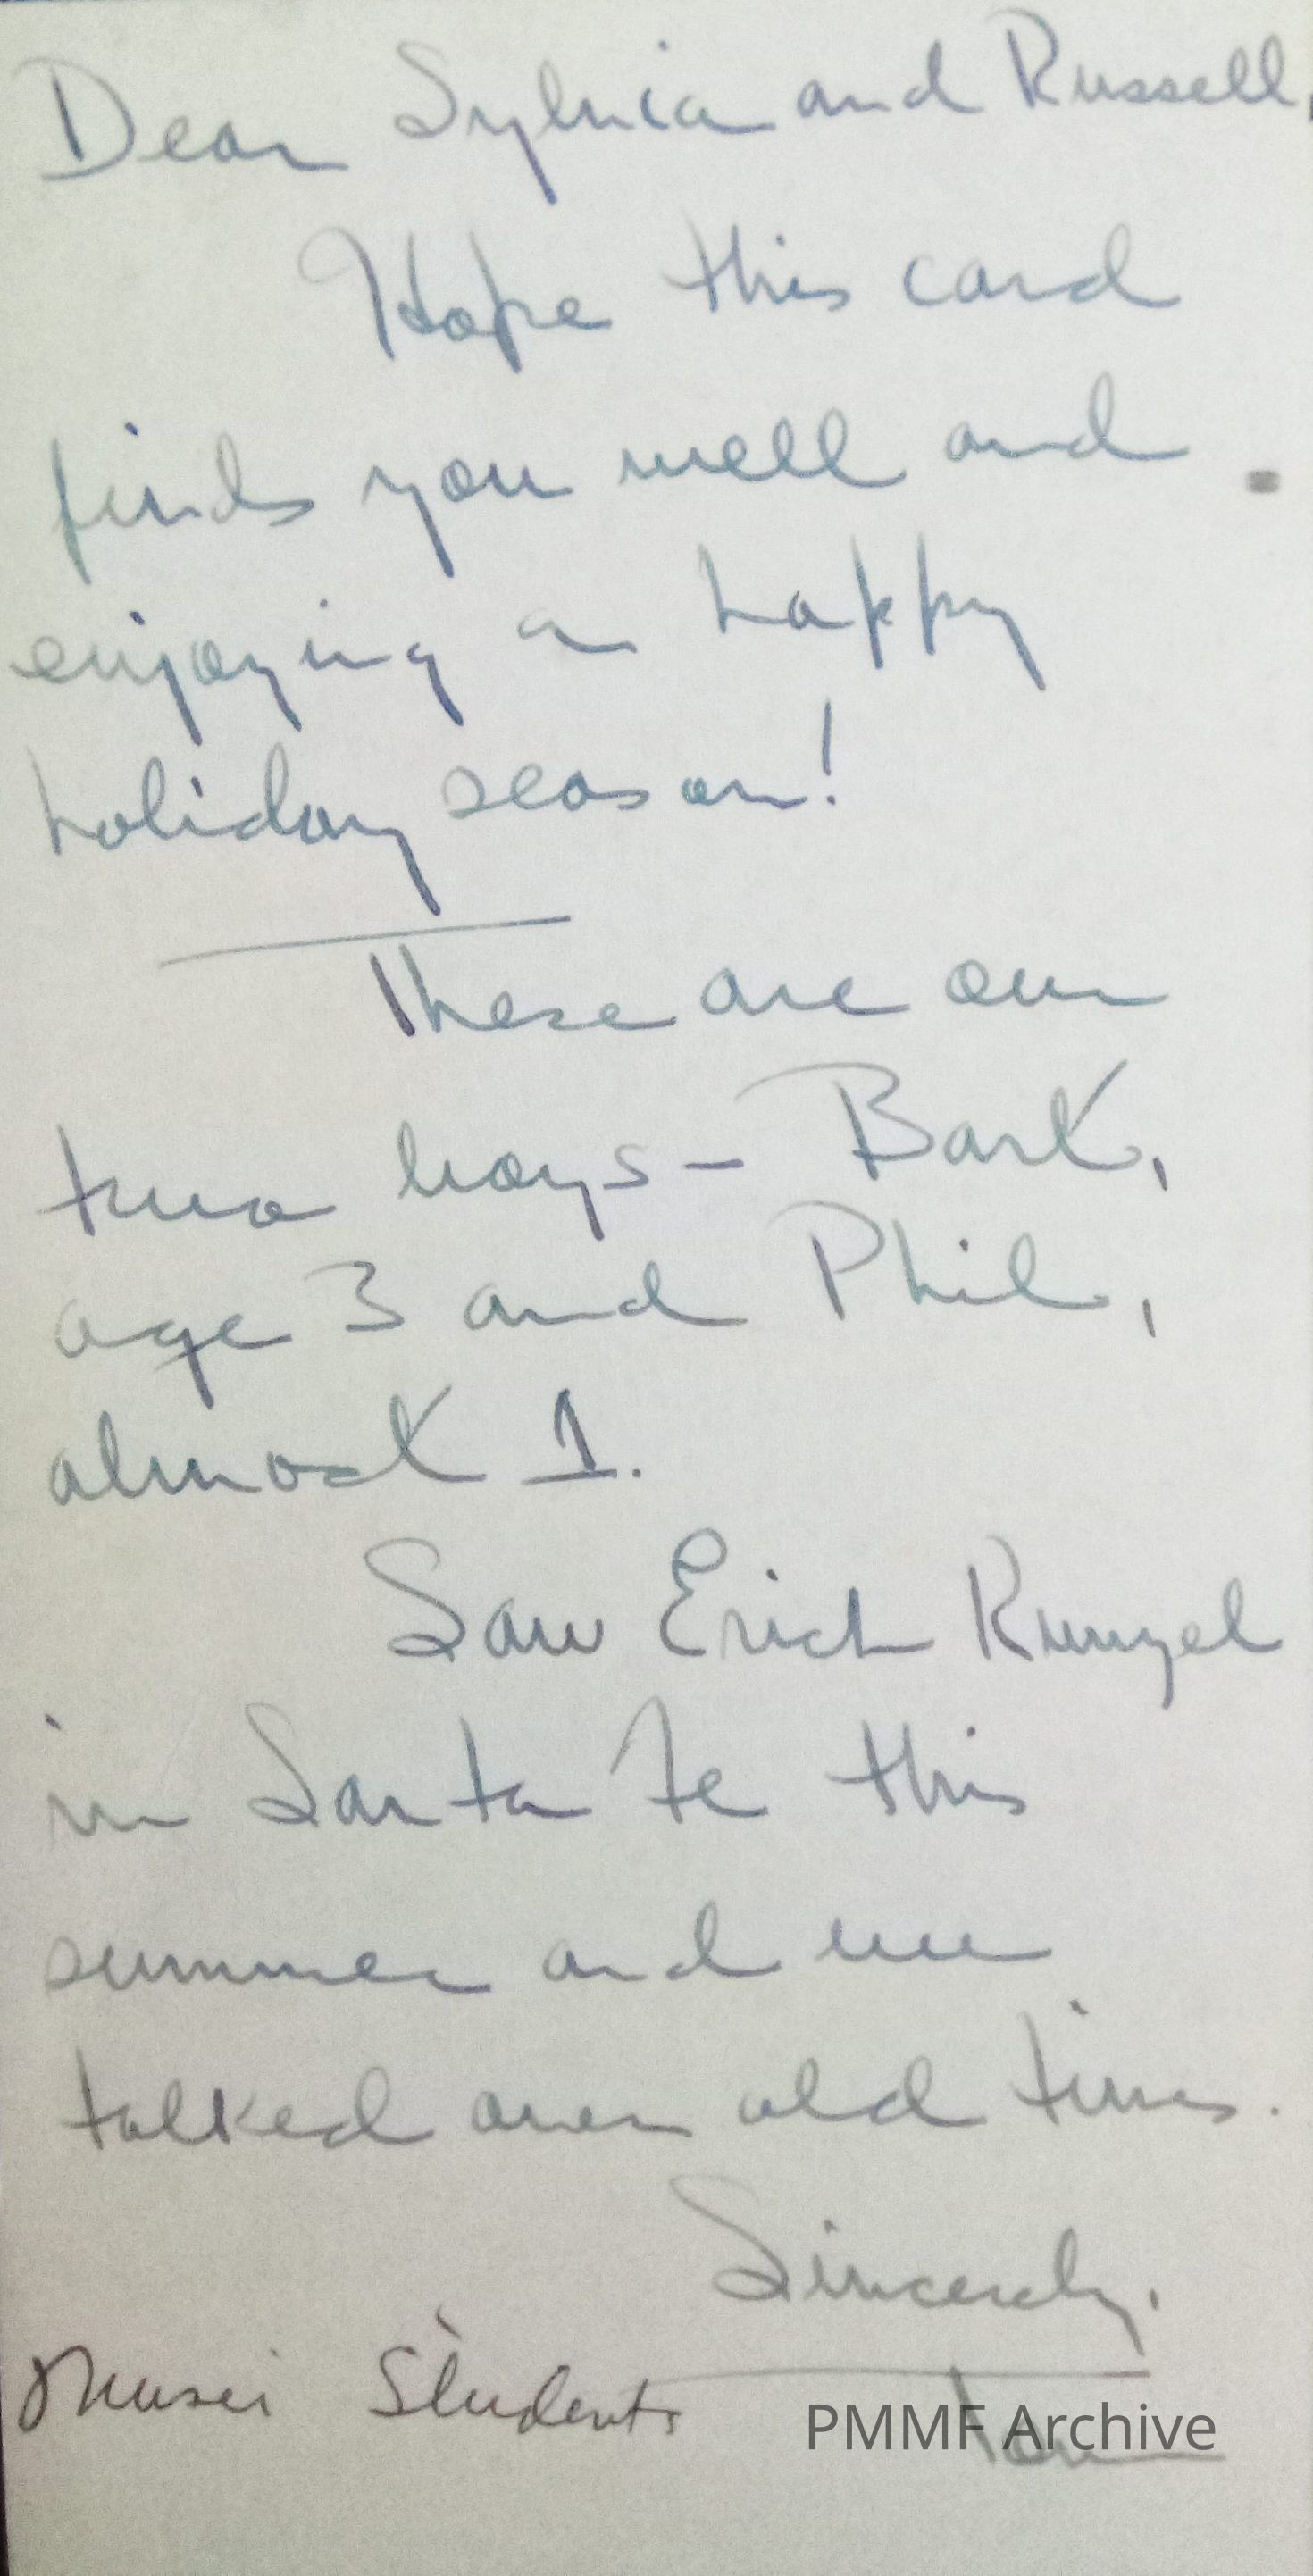 Dear Sylvia and Russell,
Hope this card
finds you well and
enjoying a happy
holiday season!
These are our
two boys – Bart,
age 3 and Phil,
almost 1.
Saw Erich Kunzel
in Santa Fe this
summer and we
talked over old times.
Sincerely,
Music Students
PMMF Archive